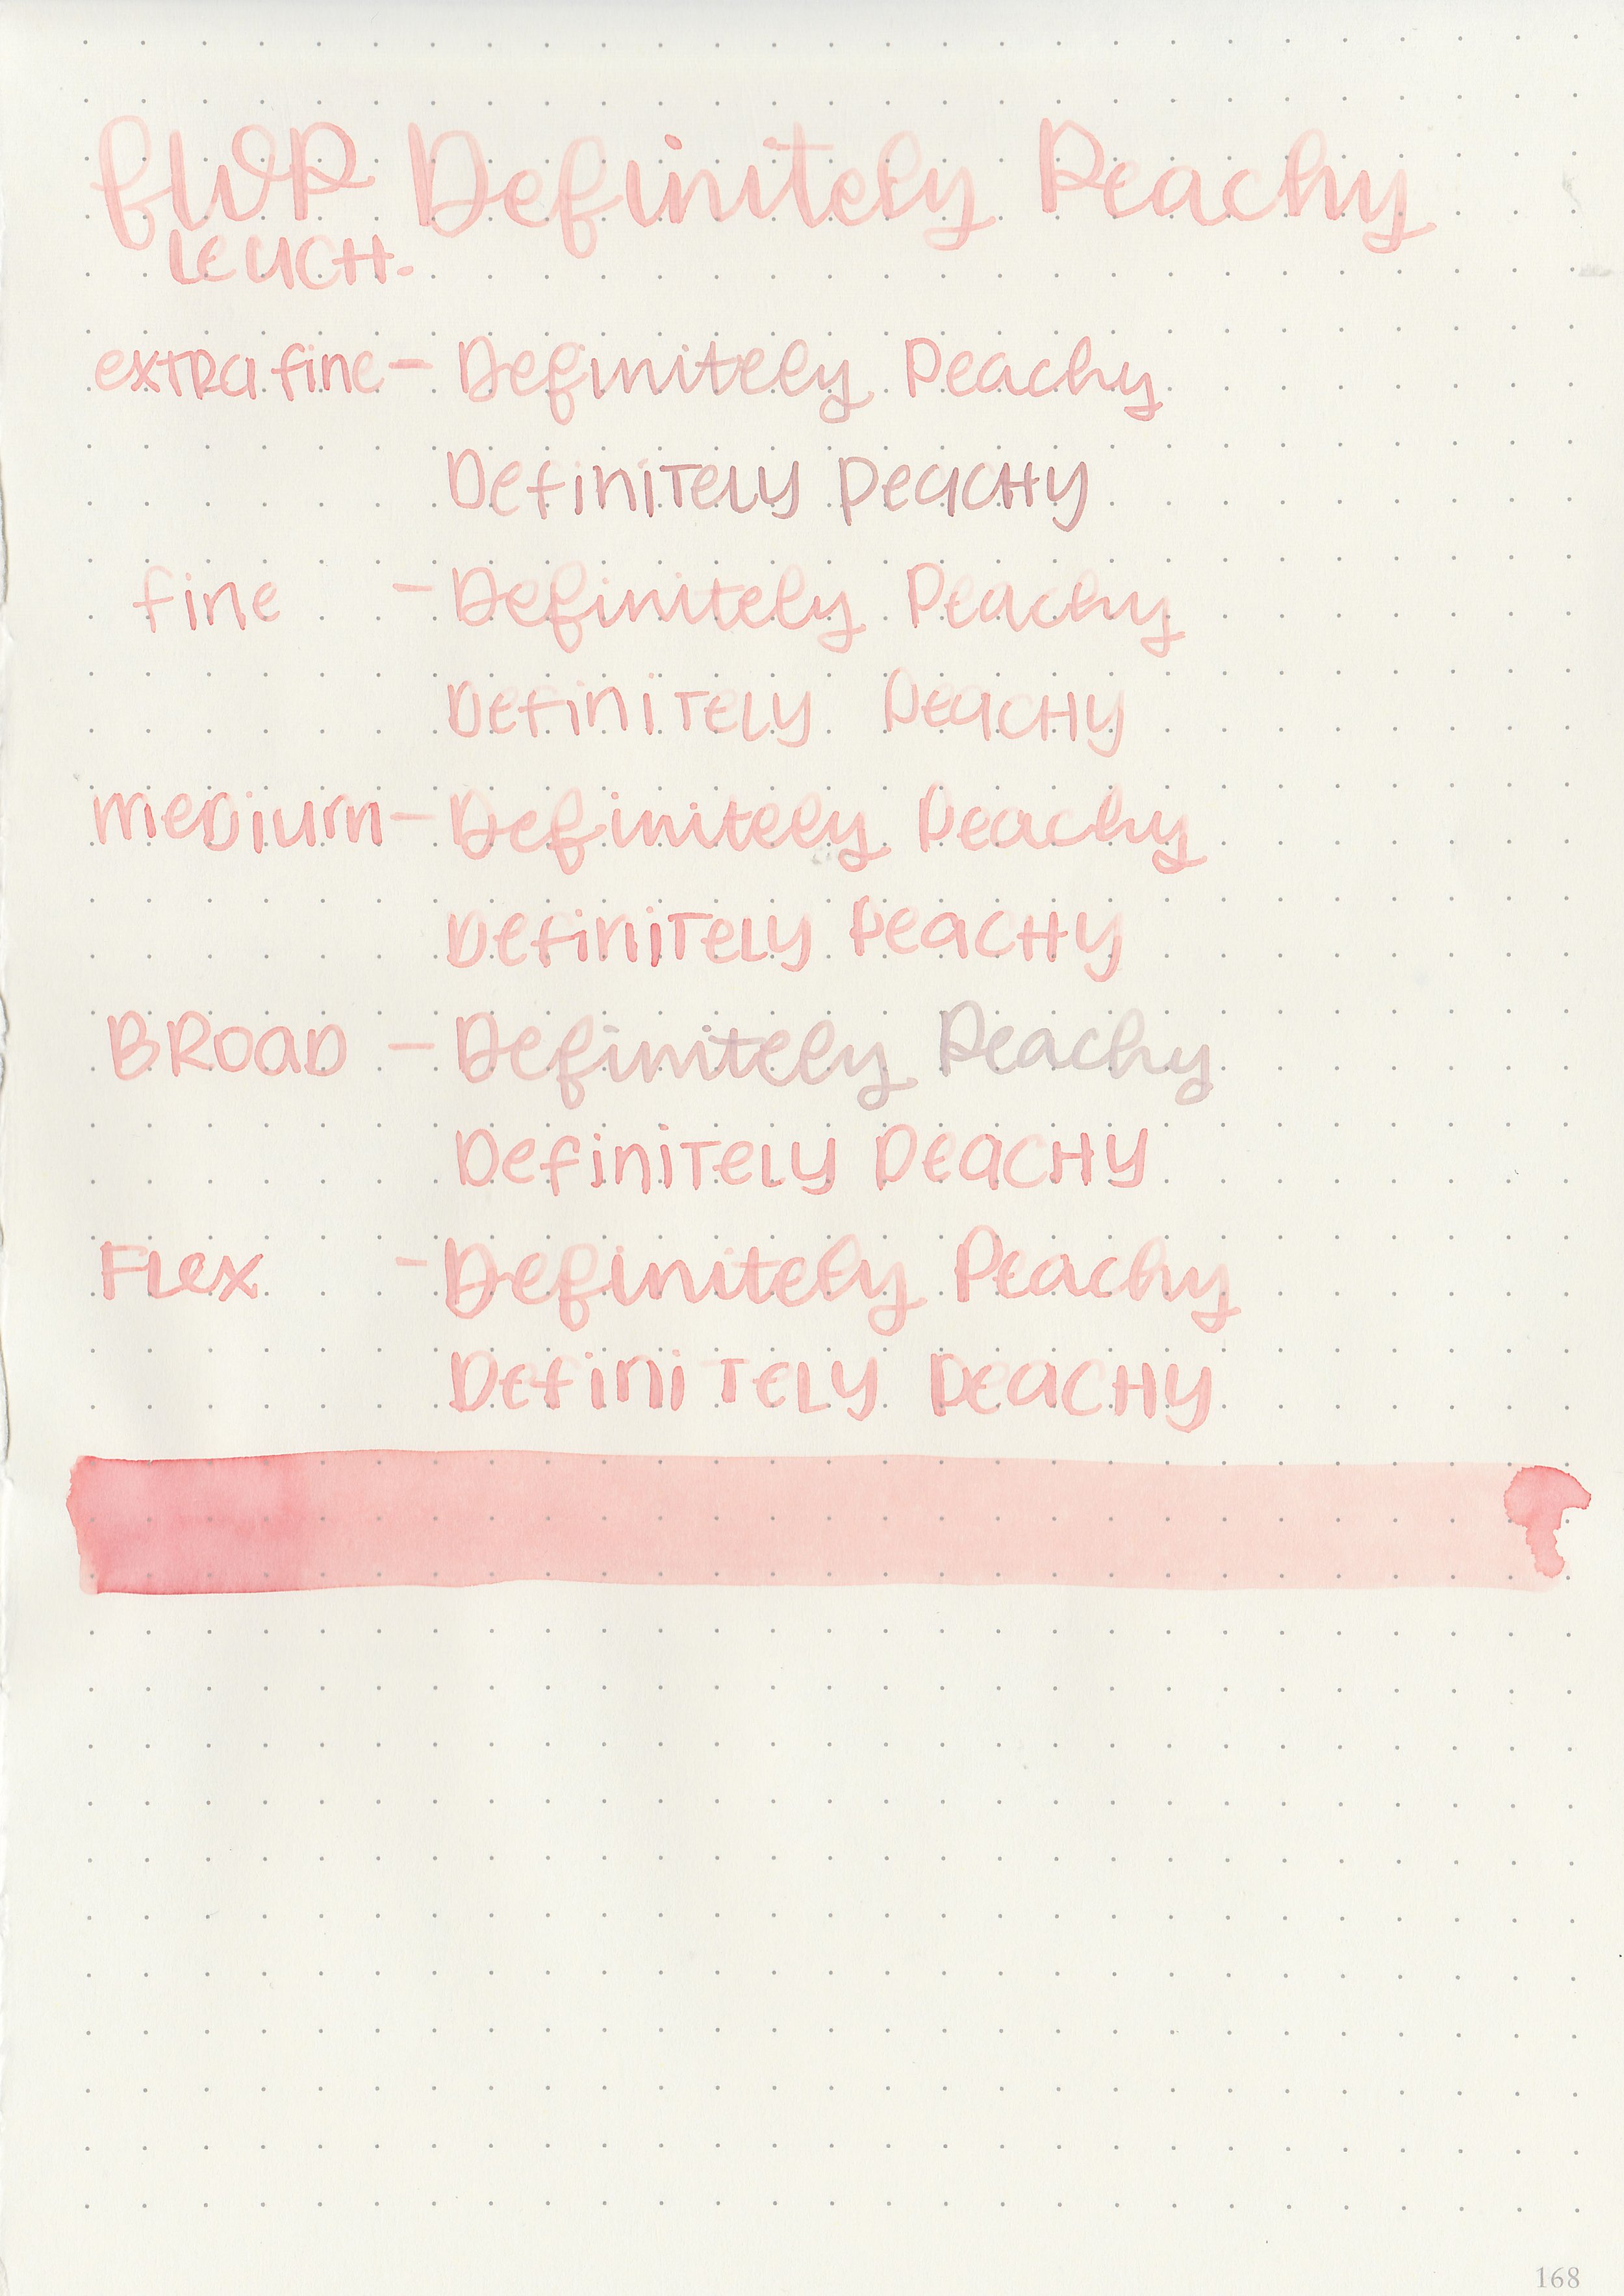 FWP Definitely Peachy
LEUCH.
extra fine - Definitely Peachy
Definitely Peachy
fine - Definitely Peachy
Definitely Peachy
medium - Definitely Peachy
Definitely Peachy
BROAD - Definitely Peachy
Definitely Peachy
Flex - Definitely Peachy
Definitely Peachy
168